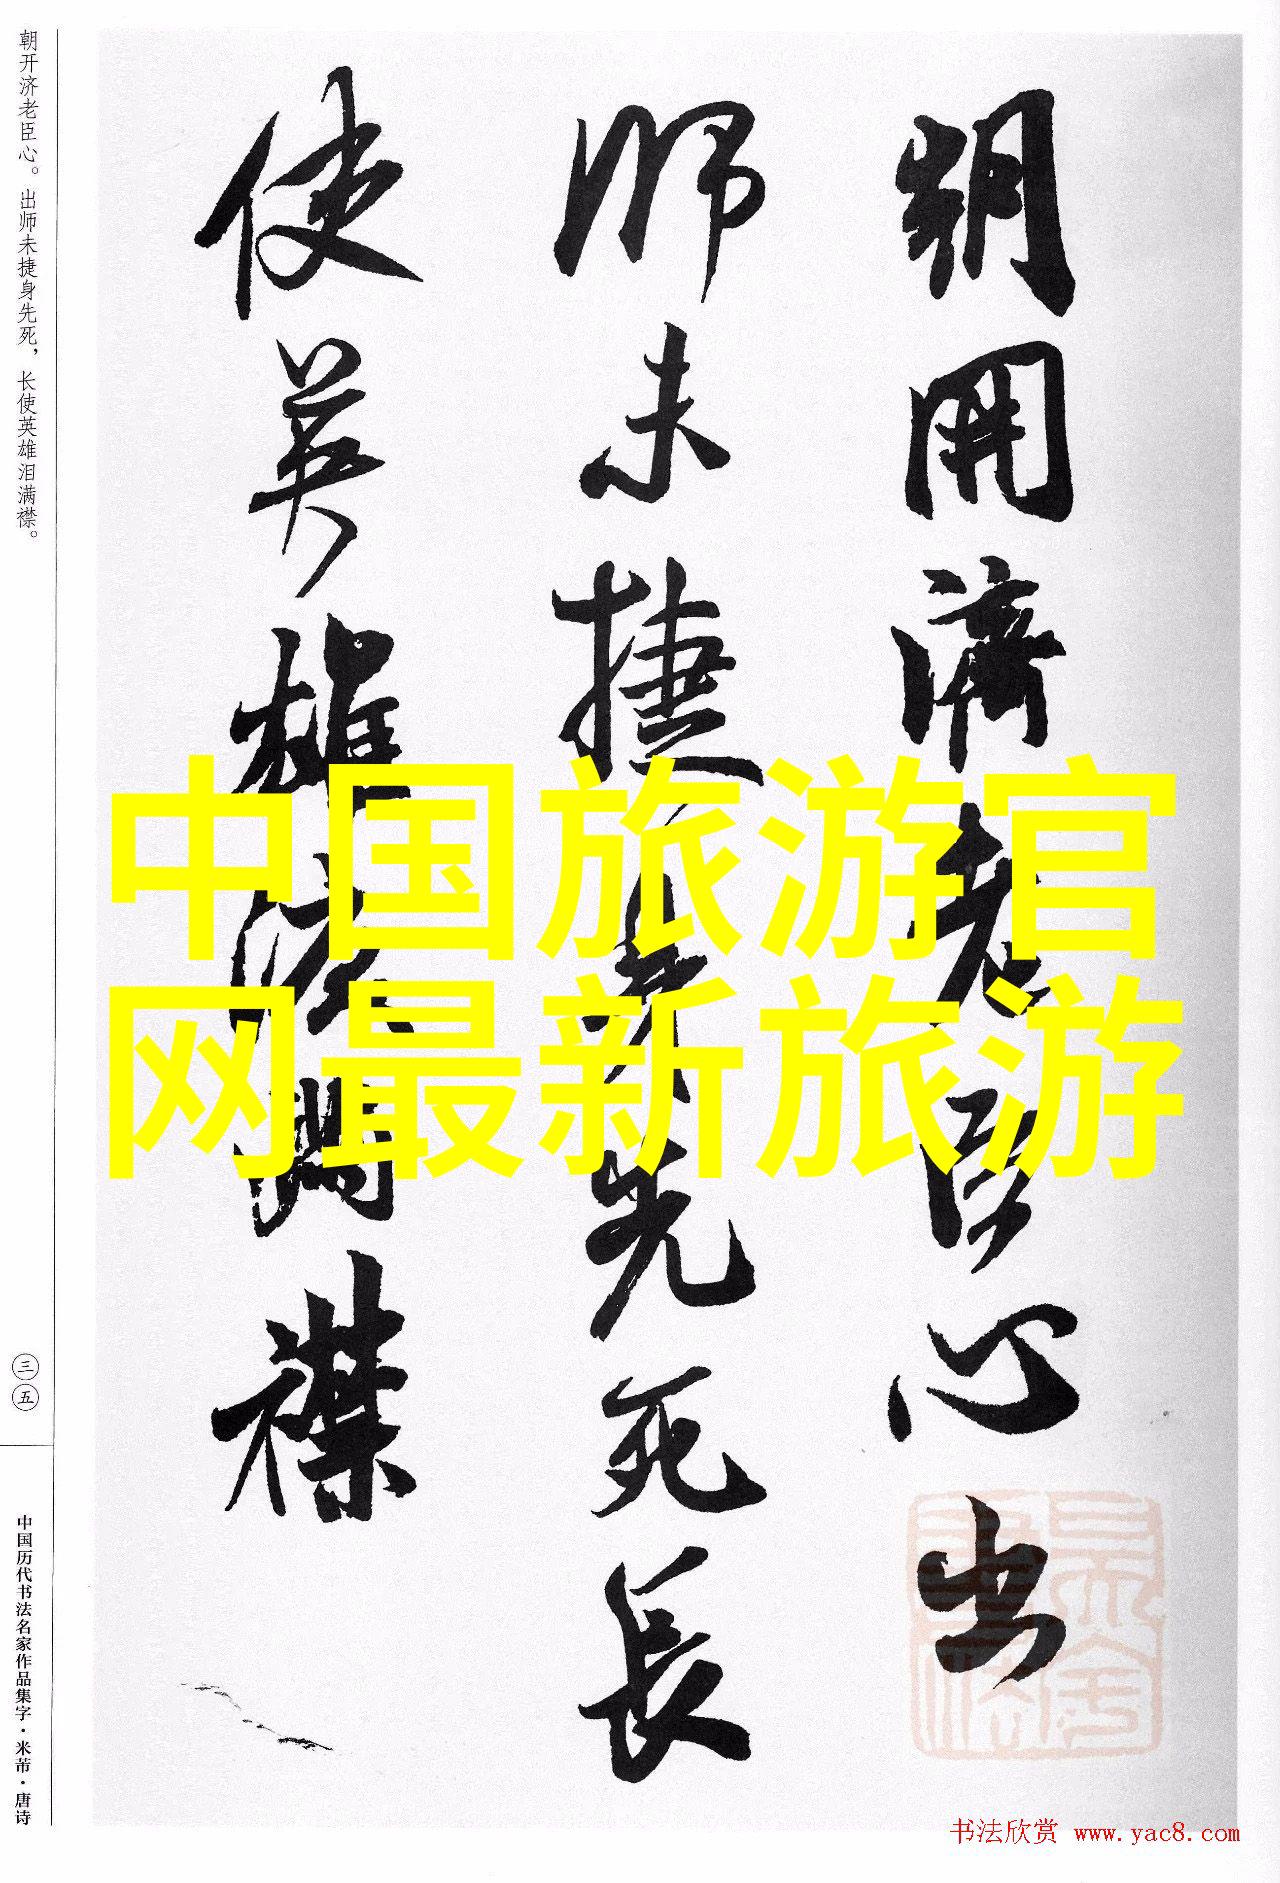 朝開濟老臣心出
師未捷身先死長
使英雄淚滿襟
朝开济老臣心。出师未捷身先死，长使英雄泪满襟。
三五
中国历代书法名家作品集字·米芾·唐诗
中国旅游官
网最新旅游
书法欣赏 www.yac8.com